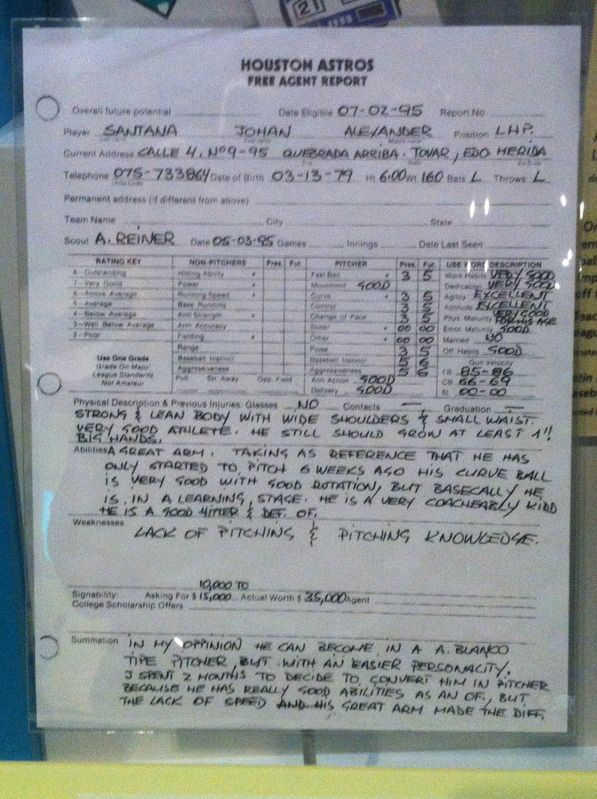 21
HOUSTON ASTROS
FREE AGENT REPORT
Overall future potential Date Eligible 07-02-95 Report No
Player SANTANA JOHAN ALEXANDER Position L.H.P.
Current Address CALLE 4, Nº9-95 QUEBRADA ARRIBA. TOVAR, EDO MERIDA
Telephone 075-733864 Date of Birth 03-13-79 Ht 6:00 Wt 160 Bats L Throws L
Permanent address (if different from above)
Team Name City State
Scout A. REINER Date 05-03-95 Games Innings Date Last Seen
RATING KEY NON-PITCHERS Pres. Fut. PITCHER Pres. Fut. USE WORD DESCRIPTION
8—Outstanding Hitting Ability Fast Ball 3 5 Work Habits VERY GOOD
7—Very Good Power Movement GOOD Dedication VERY GOOD
6—Above Average Running Speed Curve 3 5 Agility EXCELLENT
5—Average Base Running Control 3 5 Aptitude EXCELLENT
4—Below Average Arm Strength Change of Pace 3 5 Phys. Maturity VERY GOOD FOR HIS AGE
3—Well Below Average Arm Accuracy Slider 00 00 Emot. Maturity GOOD
2—Poor Fielding Other 00 00 Married NO
Range Poise 3 5 Off. Habits GOOD
Use One Grade Baseball Instinct Baseball Instinct 5 6 Gun Velocity
Grade On Major Aggressiveness Aggressiveness 5 6 FB 85-86
League Standards Pull Str. Away Opp. Field Arm Action GOOD CB 66-69
Not Amateur Delivery GOOD SL 00-00
Physical Description & Previous Injuries: Glasses NO Contacts — Graduation —
STRONG & LEAN BODY WITH WIDE SHOULDERS & SMALL WAIST.
VERY GOOD ATHLETE. HE STILL SHOULD GROW AT LEAST 1"!
BIG HANDS.
Abilities A GREAT ARM. TAKING AS REFERENCE THAT HE HAS
ONLY STARTED TO PITCH 6 WEEKS AGO HIS CURVE BALL
IS VERY GOOD WITH GOOD ROTATION, BUT BASECALLY HE
IS IN A LEARNING STAGE. HE IS A VERY COACHEABLY KIDD
HE IS A GOOD HITTER & DEF. OF.
Weaknesses
LACK OF PITCHING & PITCHING KNOWLEDGE.
10,000 TO
Signability: Asking For $ 15,000 Actual Worth $ 35,000 Agent
College Scholarship Offers
Summation IN MY OPPINION HE CAN BECOME IN A A. BLANCO
TIPE PITCHER, BUT WITH AN EASIER PERSONALITY.
I SPENT 2 MONTHS TO DECIDE TO CONVERT HIM IN PITCHER
BECAUSE HE HAS REALLY GOOD ABILITIES AS AN OF., BUT
THE LACK OF SPEED AND HIS GREAT ARM MADE THE DIFF.